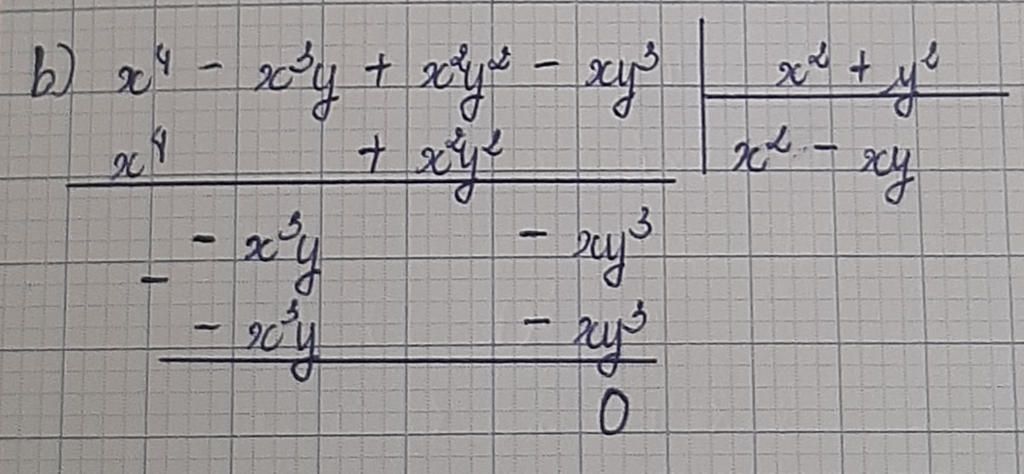 b) x⁴ - x³y + x²y² - xy³ | x² + y²
x⁴ + x²y² | x² - xy
- x³y - xy³
-
- x³y - xy³
0